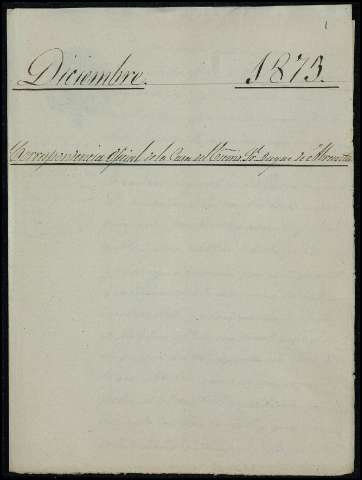 1
Diciembre. 1873.
Correspondencia Oficial de la Casa del Excmo. Sr. Duque de